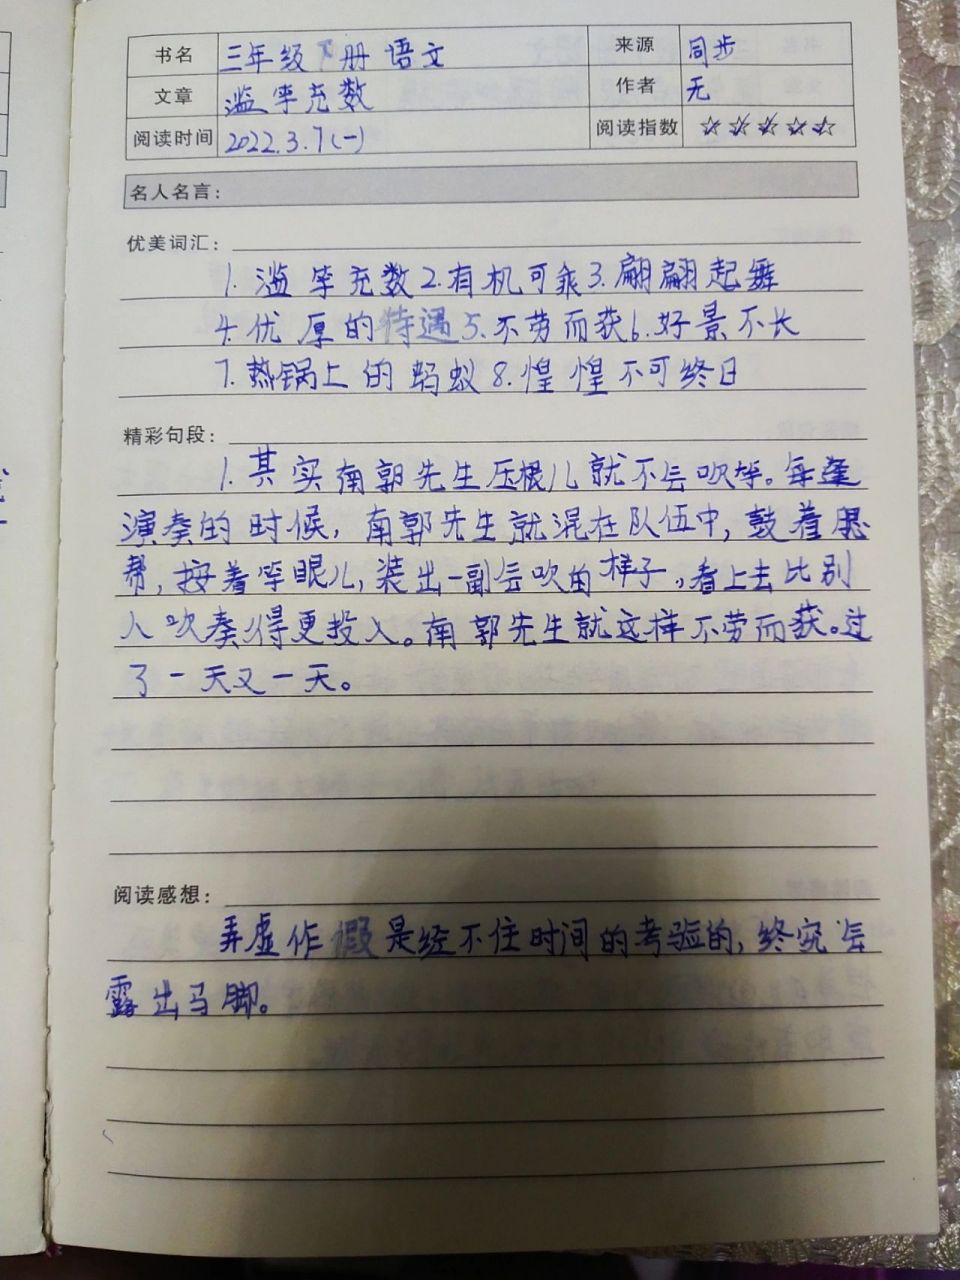 书名 三年级下册语文 来源 同步
文章 滥竽充数 作者 无
阅读时间 2022.3.7(一) 阅读指数 ☆☆☆☆☆
名人名言：
优美词汇：
1.滥竽充数2.有机可乘3.翩翩起舞
4.优厚的待遇5.不劳而获6.好景不长
7.热锅上的蚂蚁8.惶惶不可终日
精彩句段：
1.其实南郭先生压根儿就不会吹竽。每逢
演奏的时候，南郭先生就混在队伍中，鼓着腮
帮，按着竽眼儿，装出一副会吹的样子，看上去比别
人吹奏得更投入。南郭先生就这样不劳而获。过
了一天又一天。
阅读感想：
弄虚作假是经不住时间的考验的，终究会
露出马脚。